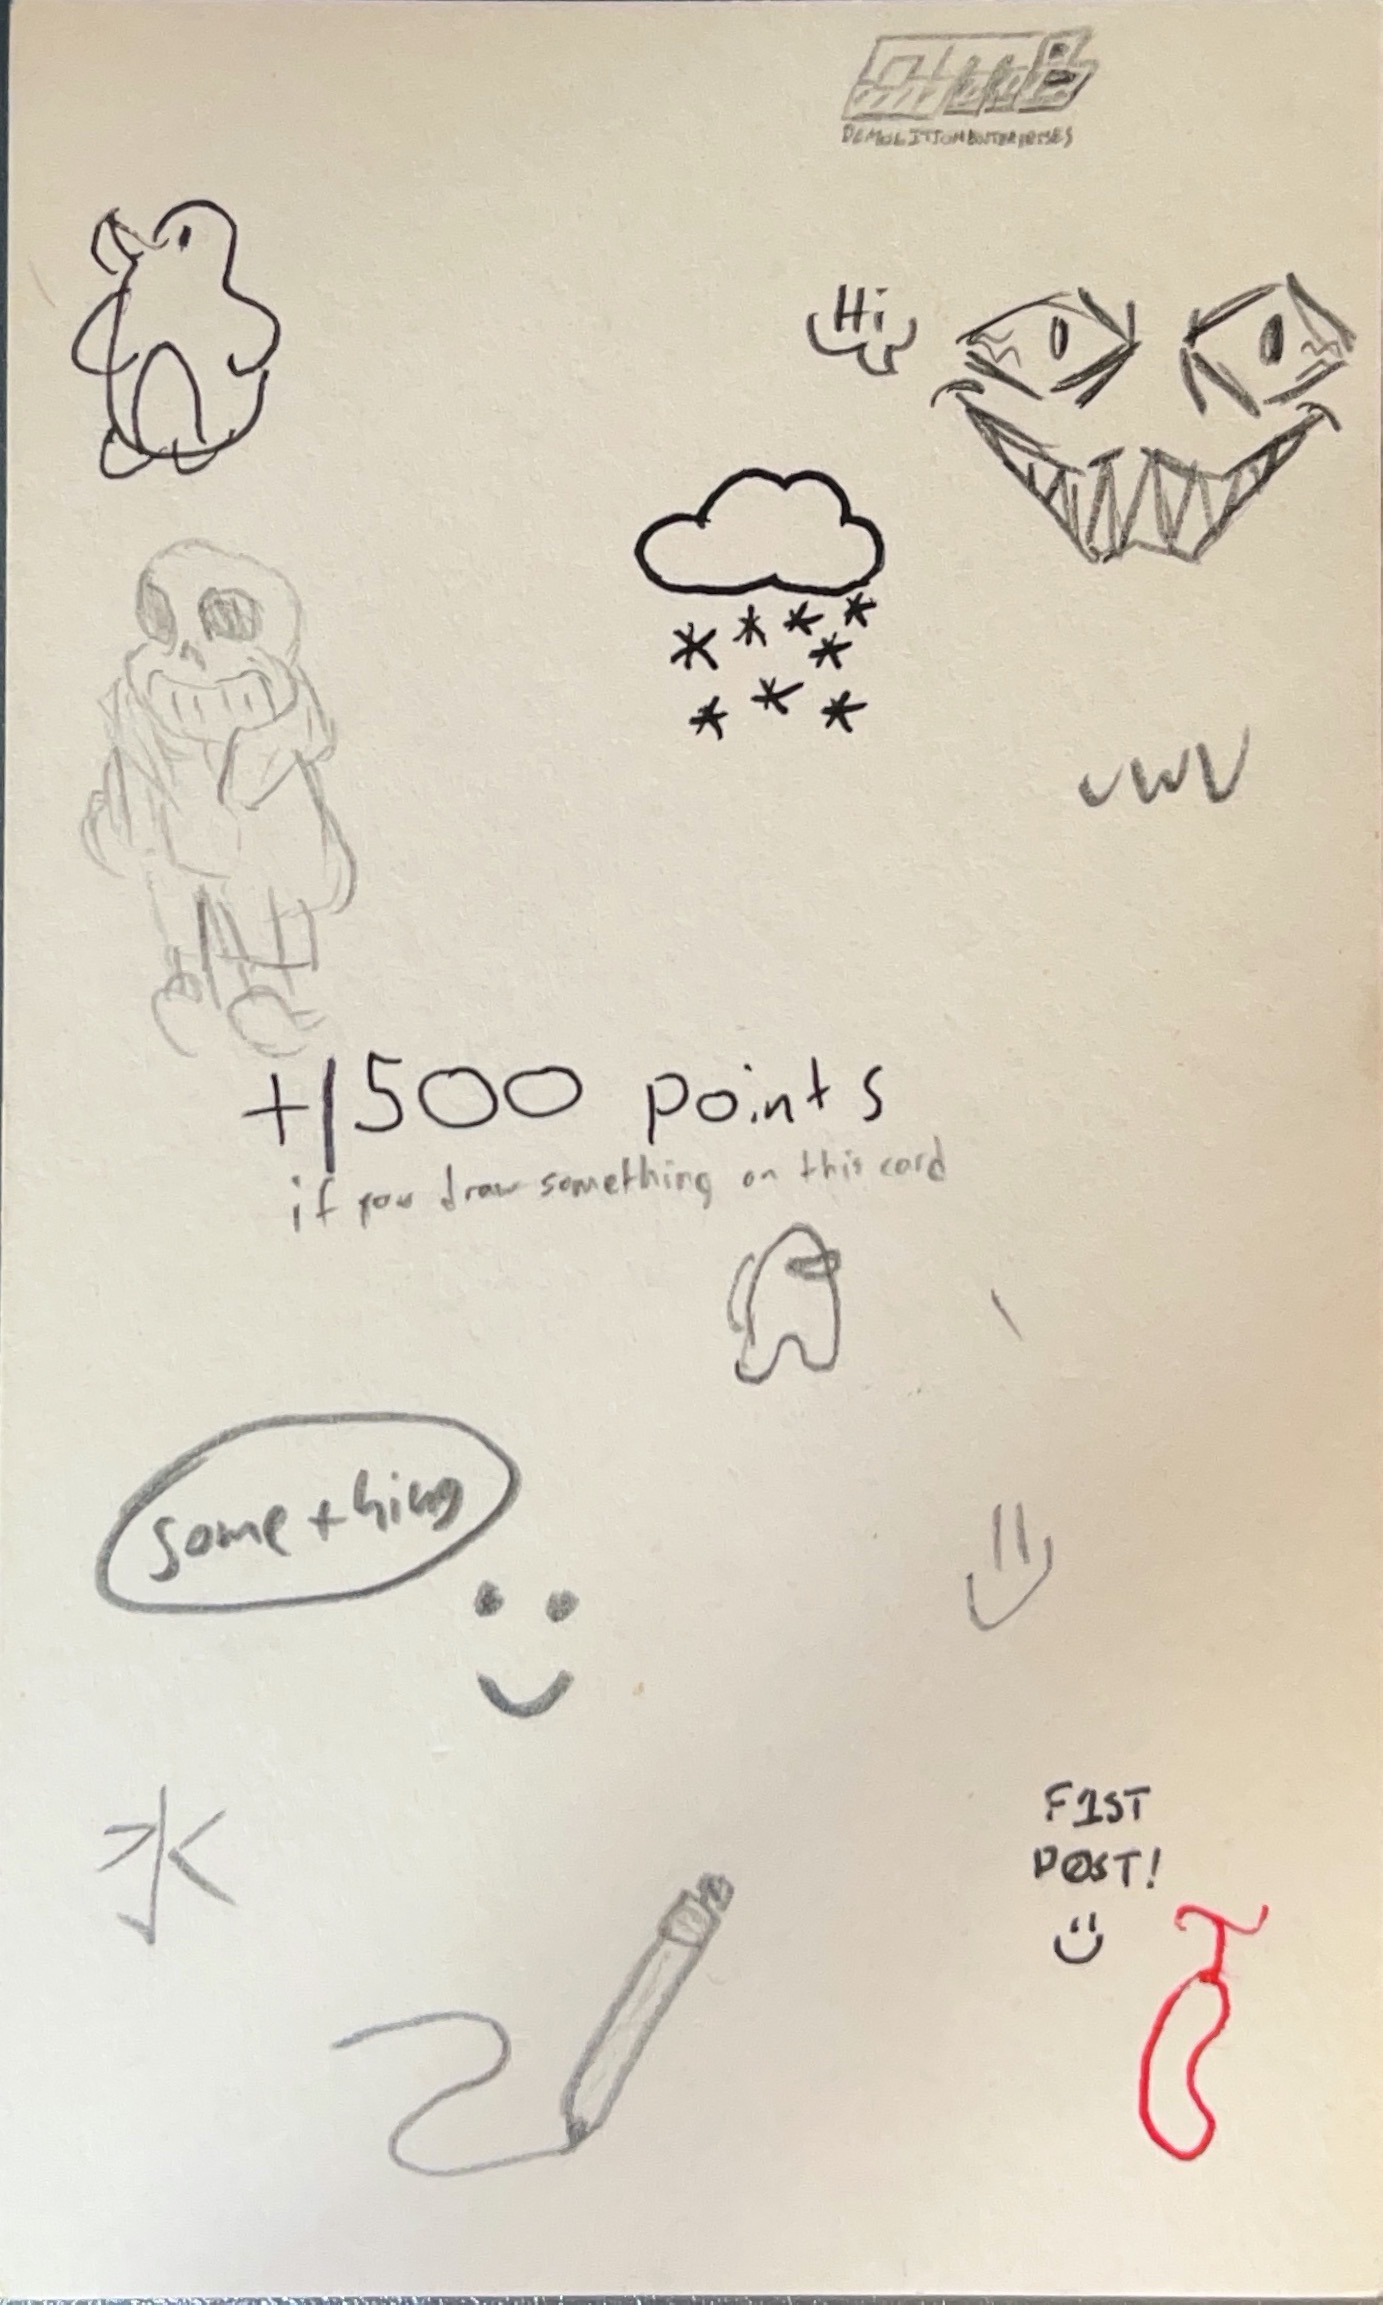 DEMOLITIONENTERPRISES
Hi
uwu
+1500 points
if you draw something on this card
something
水
F1ST
POST!